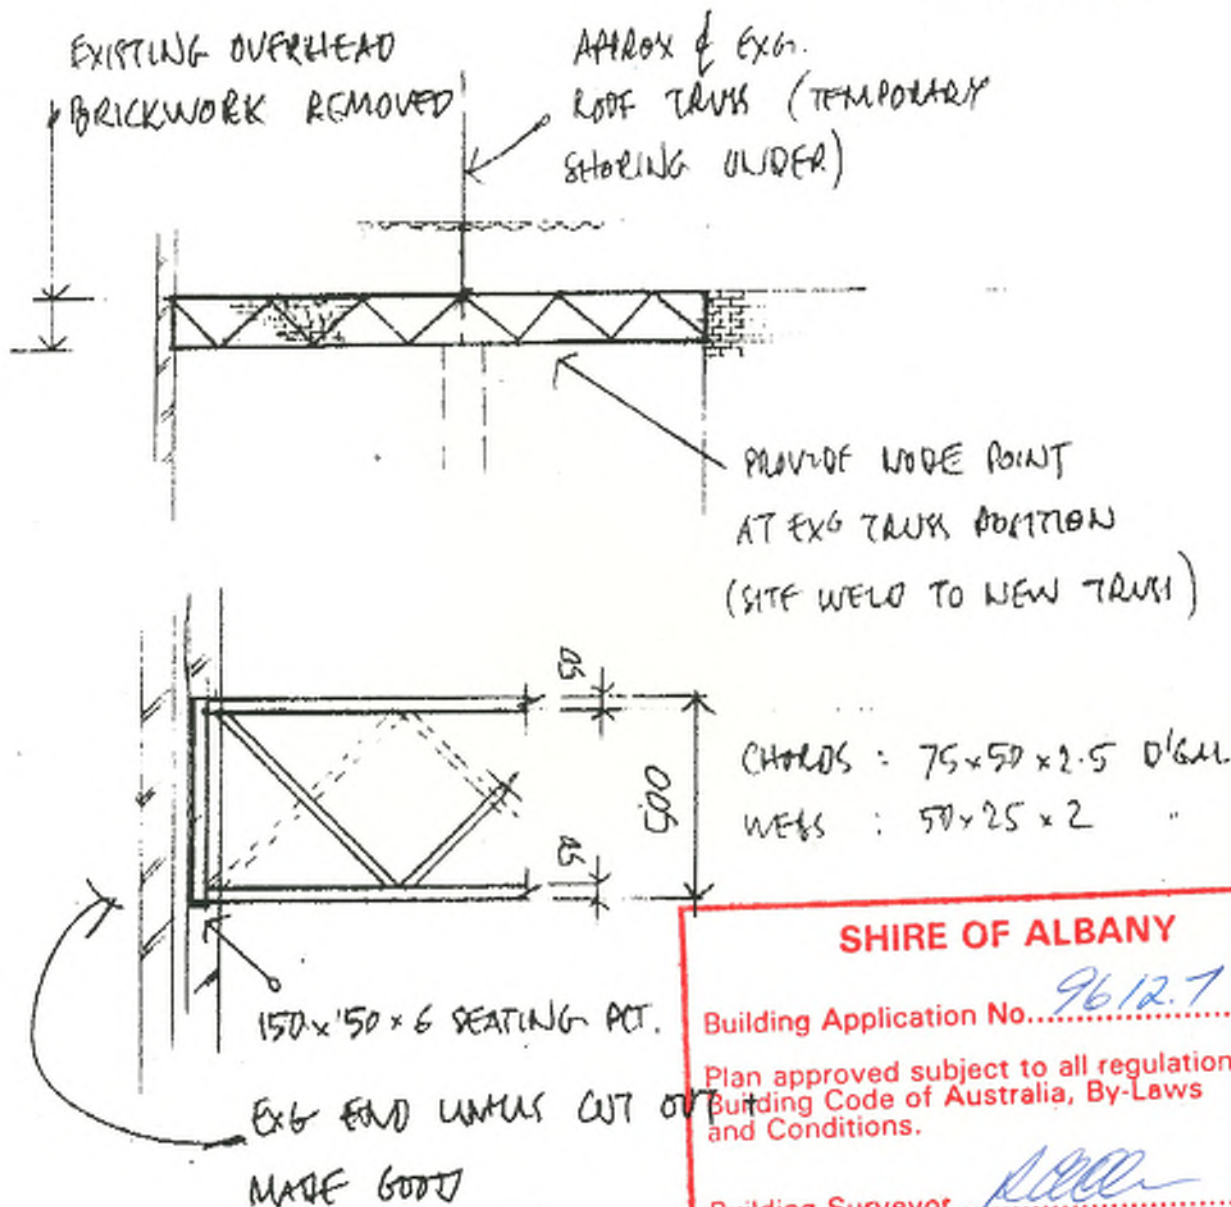 EXISTING OVERHEAD
BRICKWORK REMOVED
APPROX ℄ EXG.
ROOF TRUSS (TEMPORARY
SHORING UNDER)
PROVIDE NODE POINT
AT EXG TRUSS POSITION
(SITE WELD TO NEW TRUSS)
50
500
50
CHORDS : 75x50x2.5 D'GAL
WEBS : 50x25x2 "
150x150x6 SEATING PLT.
EXG END WALLS CUT OUT +
MADE GOOD
SHIRE OF ALBANY
Building Application No. 9612.7
Plan approved subject to all regulation
Building Code of Australia, By-Laws
and Conditions.
Building Surveyor